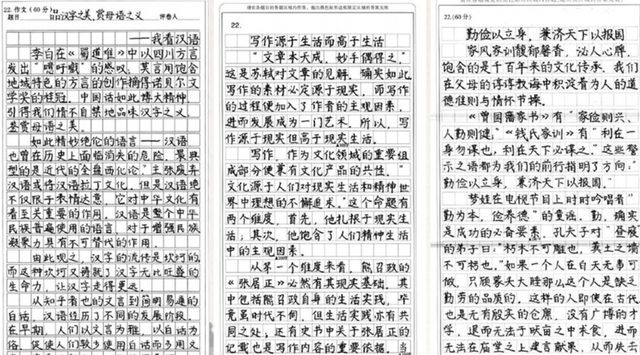 22.作文(60分)
题目 品汉字之美,赏母语之义 评卷人
——我看汉语
李白在《蜀道难》中以四川方言
发出"噫吁嚱"的感叹,莫言用饱含
地域特色的方言的创作摘得诺贝尔文
学奖的桂冠,中国话如此博大精神,
引得我们情不自禁地品味汉字之义,
鉴赏母语之美。
如此精妙绝伦的语言——汉语
也曾在历史上面临消失的危险,最典
型的是近代的全盘西化论,主张废弃
汉语或将汉语拉丁文化。但是汉语绝
不仅限于表情达意,它对中华文化有
着至关重要的作用。汉语是整个中华
民族普遍使用的语言,对于增强民族
凝聚力具有不可替代的作用。
由此观之,汉字的流传是坎坷的,
而这种坎坷又铸就了汉字无比旺盛的
生命力,让汉字走得更远。
从知乎者也的文言到简明易通的
白话,汉语经历了不同的发展阶段。
在早期,人们以文言为雅,以白话为
俗,促使人们较多使用白话而多用文
请在各题目的答题区域内作答,超出黑色矩形边框限定区域的答案无效
22.
写作源于生活而高于生活
"文章本天成,妙手偶得之。"
这是苏轼对文章的见解,确实如此
写作的素材必定源于现实,而写作
的过程便加入了作者的主观因素,
进而发展成为一门艺术。所以,写
作源于现实但高于现实生活。
写作,作为文化领域的重要组
成部分便累有文化产品的共性。"
文化源于人们对现实生活和精神世
界中理想的不懈追求。"这个命题有
两个维度。首先,他扎根于现实生
活;其次,他饱含了人们精神生活
中的主观因素。
从第一个维度来看,熊召政的
《张居正》必然有其现实基础。其
中包括熊召政自身的生活实践,毕
竟虽时代不同,但生活实践亦有共
同之处,还有史书中关于张居正的
记载也是写作内容的重要依据。当
22.(60分)
勤俭以立身,兼济天下以报国
家风家训馥郁馨香,沁人心脾,
饱含的是千百年来的文化传承。我们
在父母的谆谆教诲中积淀着为人的道
德准则与情怀节操。
《曾国藩家书》有"家俭则兴,
人勤则健,"《钱氏家训》有"利在一
身勿谋也,利在天下必谋之。"这些警
示之语都为我们的前行指明了方向:
勤俭以立身,兼济天下以报国。
梦娃在电视节目上时时吟唱着"
勤为本,俭养德"的童谣。勤,确实
是成功的必备要素。孔夫子对"昼寝"
的弟子曰:"朽木不可雕也,粪土之墙
不可杇也。"如果一个人在白天无事可
做,只顾蒙头大睡那么这个人是缺乏
勤劳的品质的,这样的人即使在古代
也是无有殷实的仓廪,没有广博的才
学,退而无法于畎亩之中求食,进而
无法在庙堂之上建言献策,从而文